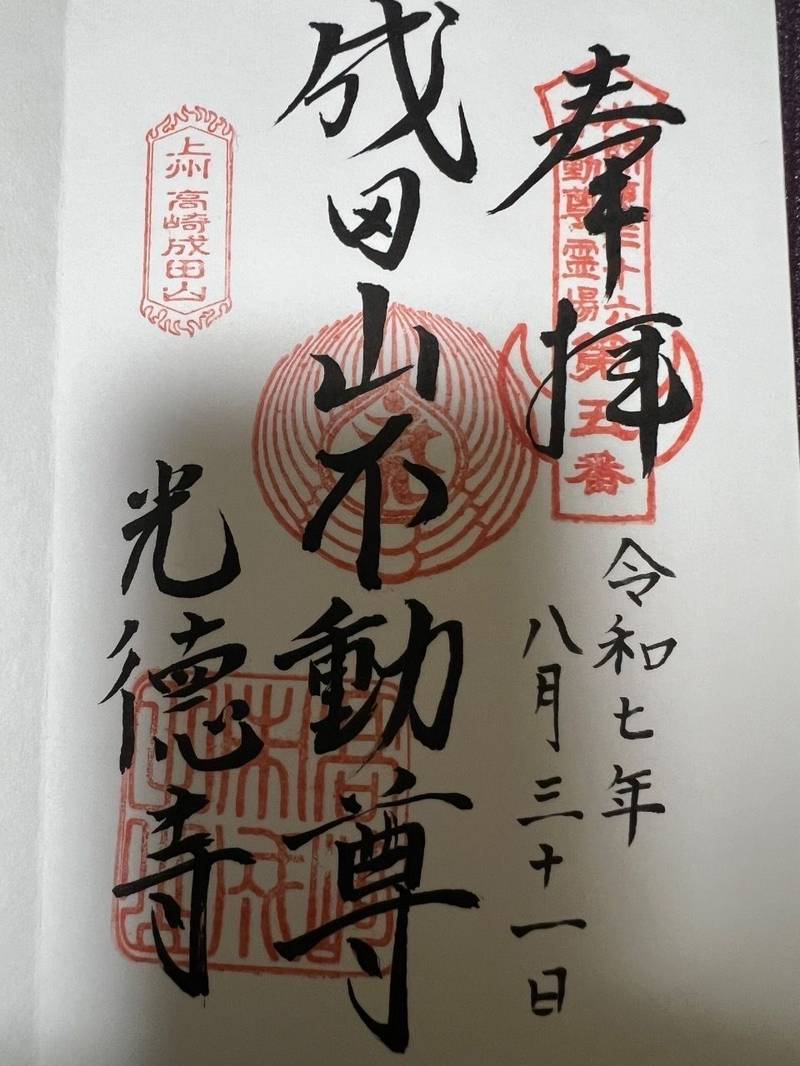 奉拝
不動尊霊場
第五番
令和七年
八月三十一日
成田山不動尊
光徳寺
上州 高崎成田山